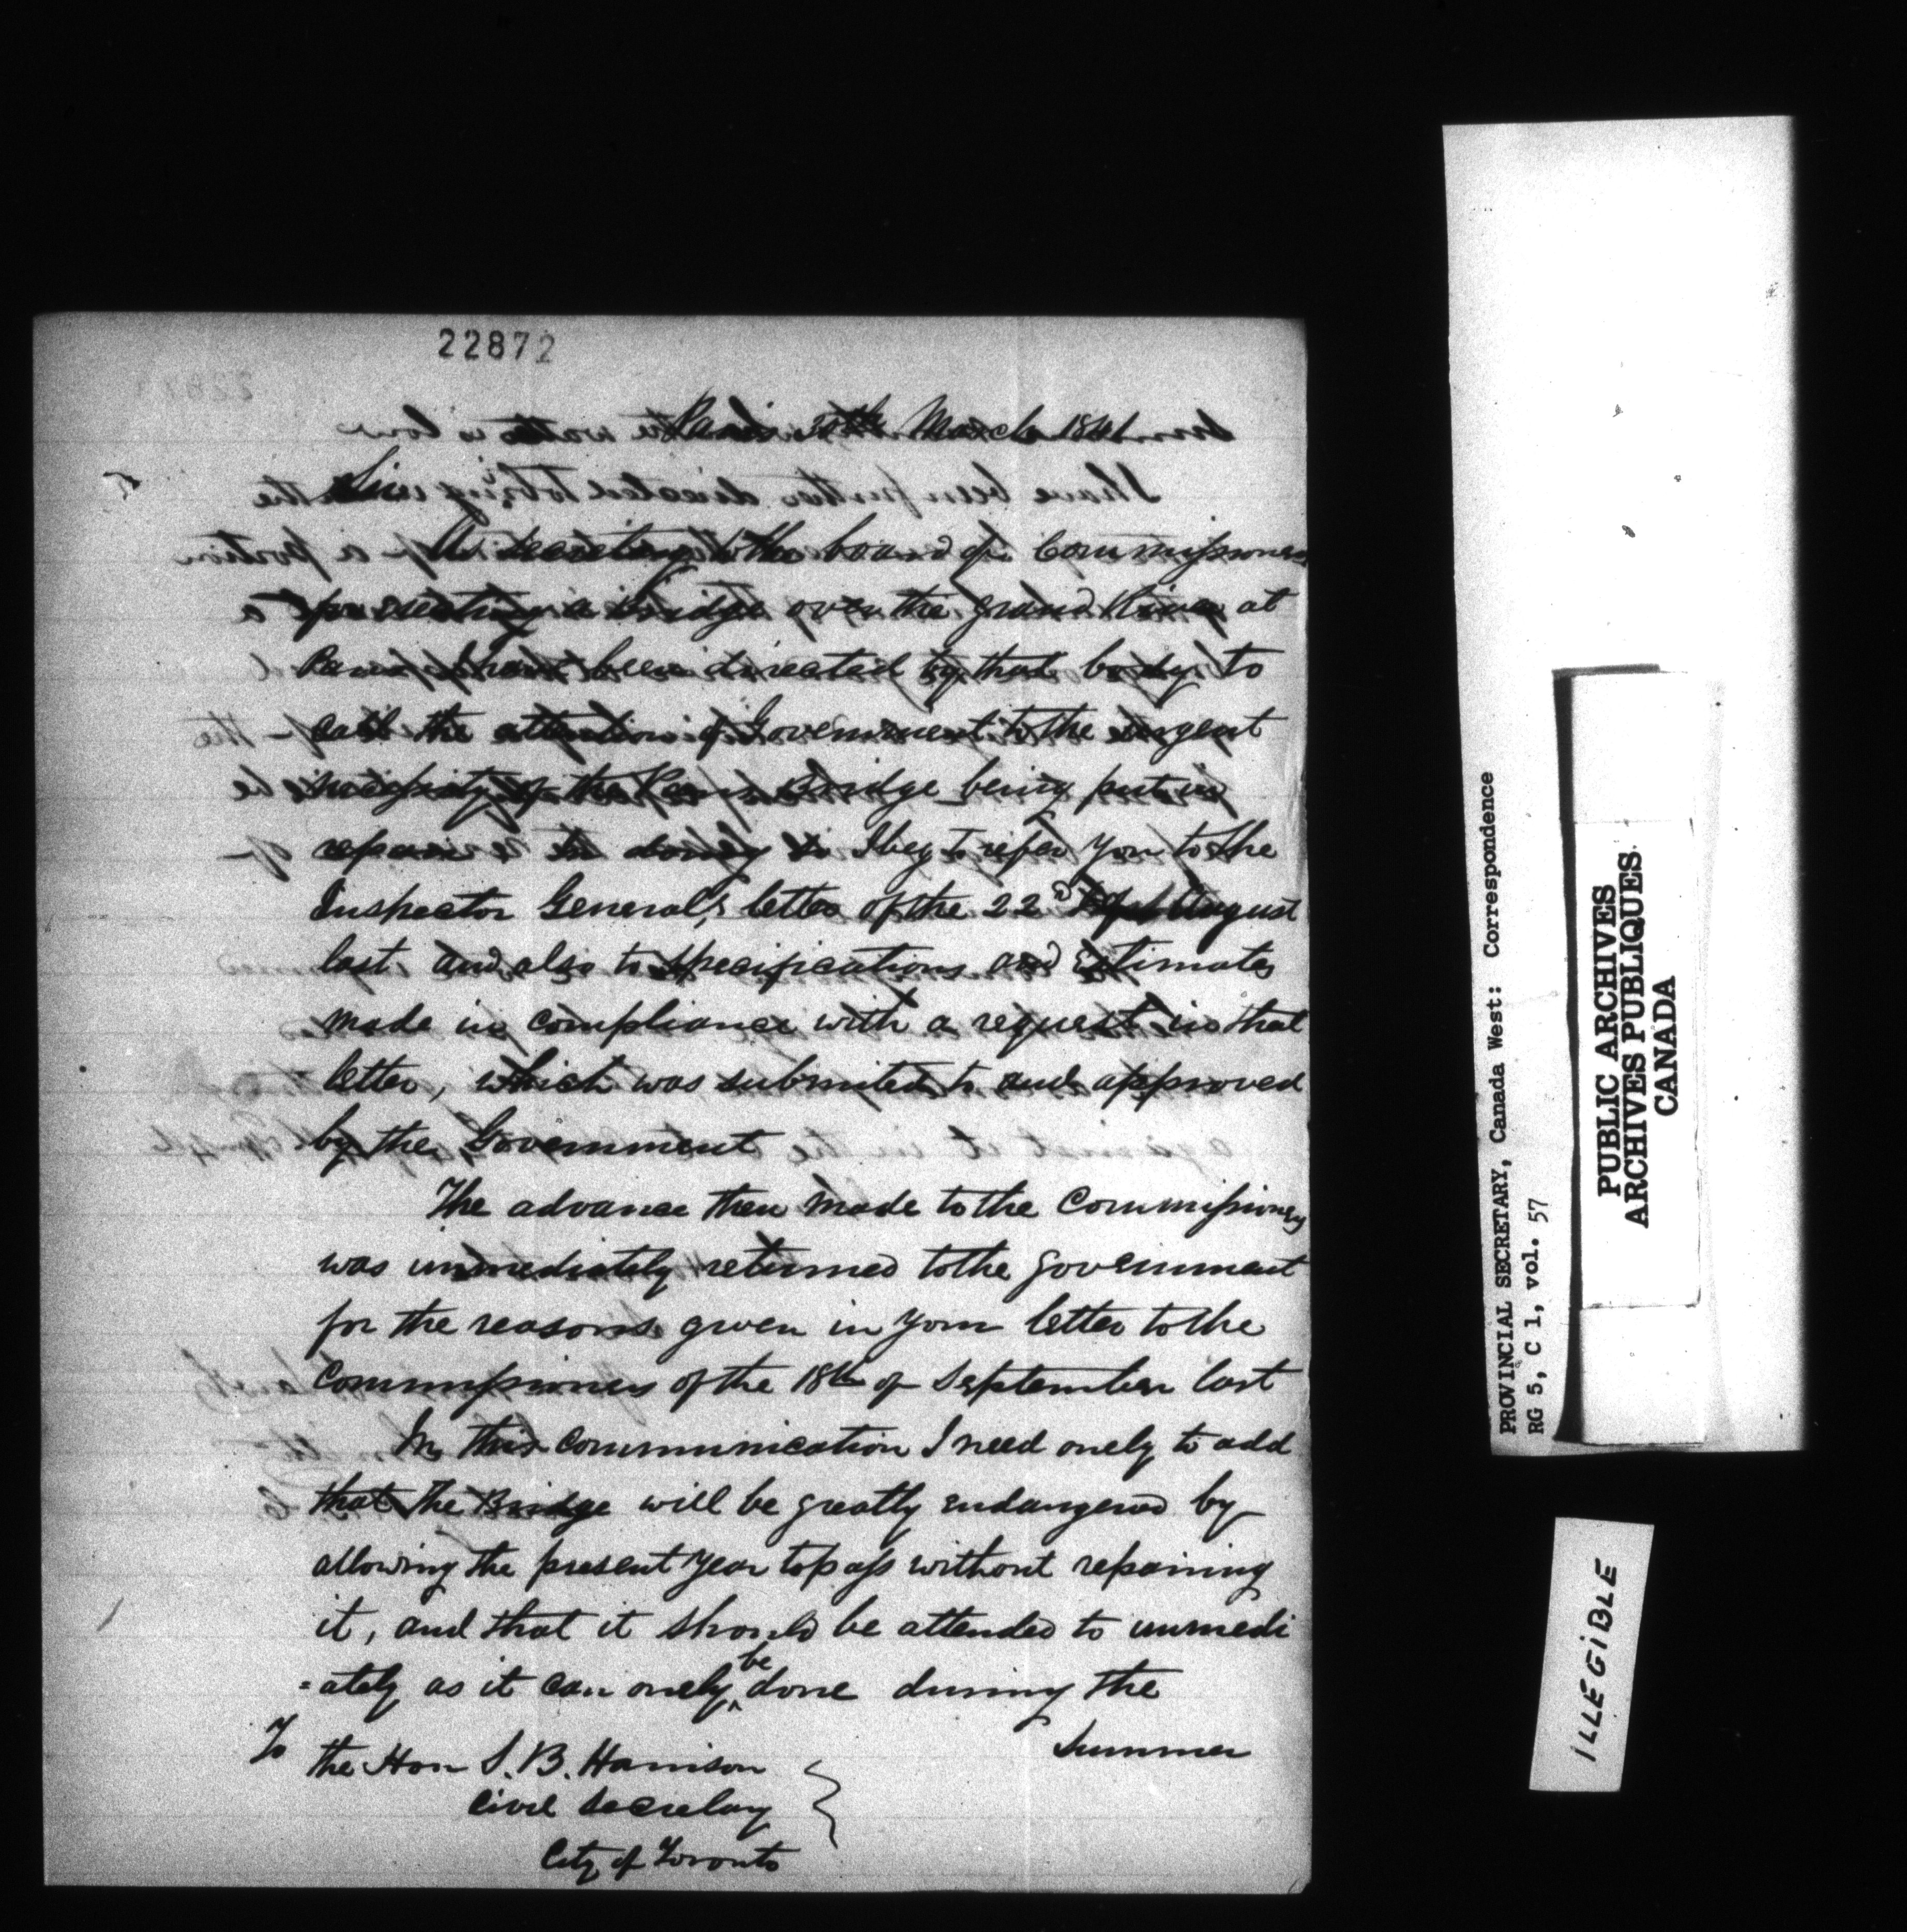 22872
Paris 30th March 1841
Sir
As secretary to the board of Commissioners
for erecting a Bridge over the Grand River at
Paris I have been directed by that body to
call the attention of Government to the urgent
necessity of the Paris Bridge being put in
repair in doing so I beg to refer you to the
Inspector General's letter of the 22d August
last and also to specifications and Estimates
made in compliance with a request in that
letter, which was submited to and approved
by the Government
The advance then made to the Commissioners
was immediately returned to the government
for the reasons given in your letter to the
Commissioners of the 18th of September last
In this communication I need onely to add
that the Bridge will be greatly endangered by
allowing the present year to pass without repairing
it, and that it should be attended to immedi
=ately as it can onely be done during the
Summer
To the Hon S. B. Harrison
Civil Secretary
City of Toronto
PROVINCIAL SECRETARY, Canada West: Correspondence
RG 5, C 1, vol. 57
PUBLIC ARCHIVES
ARCHIVES PUBLIQUES
CANADA
ILLEGIBLE